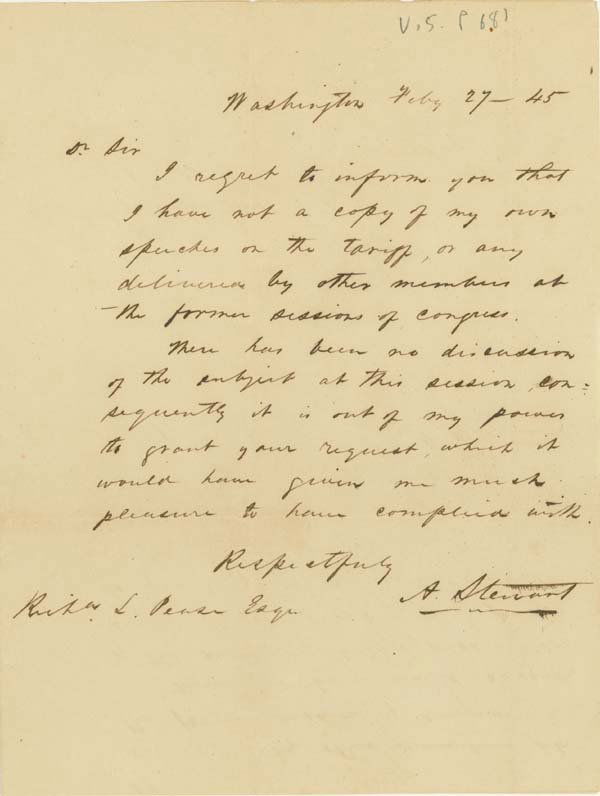 V.S. P 68)
Washington Feby 27 - 45
Dr Sir
I regret to inform you that
I have not a copy of my own
speeches on the tariff, or any
delivered by other members at
the former sessions of congress.
There has been no discussion
of the subject at this session, con=
sequently it is out of my power
to grant your request, which it
would have given me much
pleasure to have complied with.
Respectfuly
A. Stewart
L. Pease Esqr